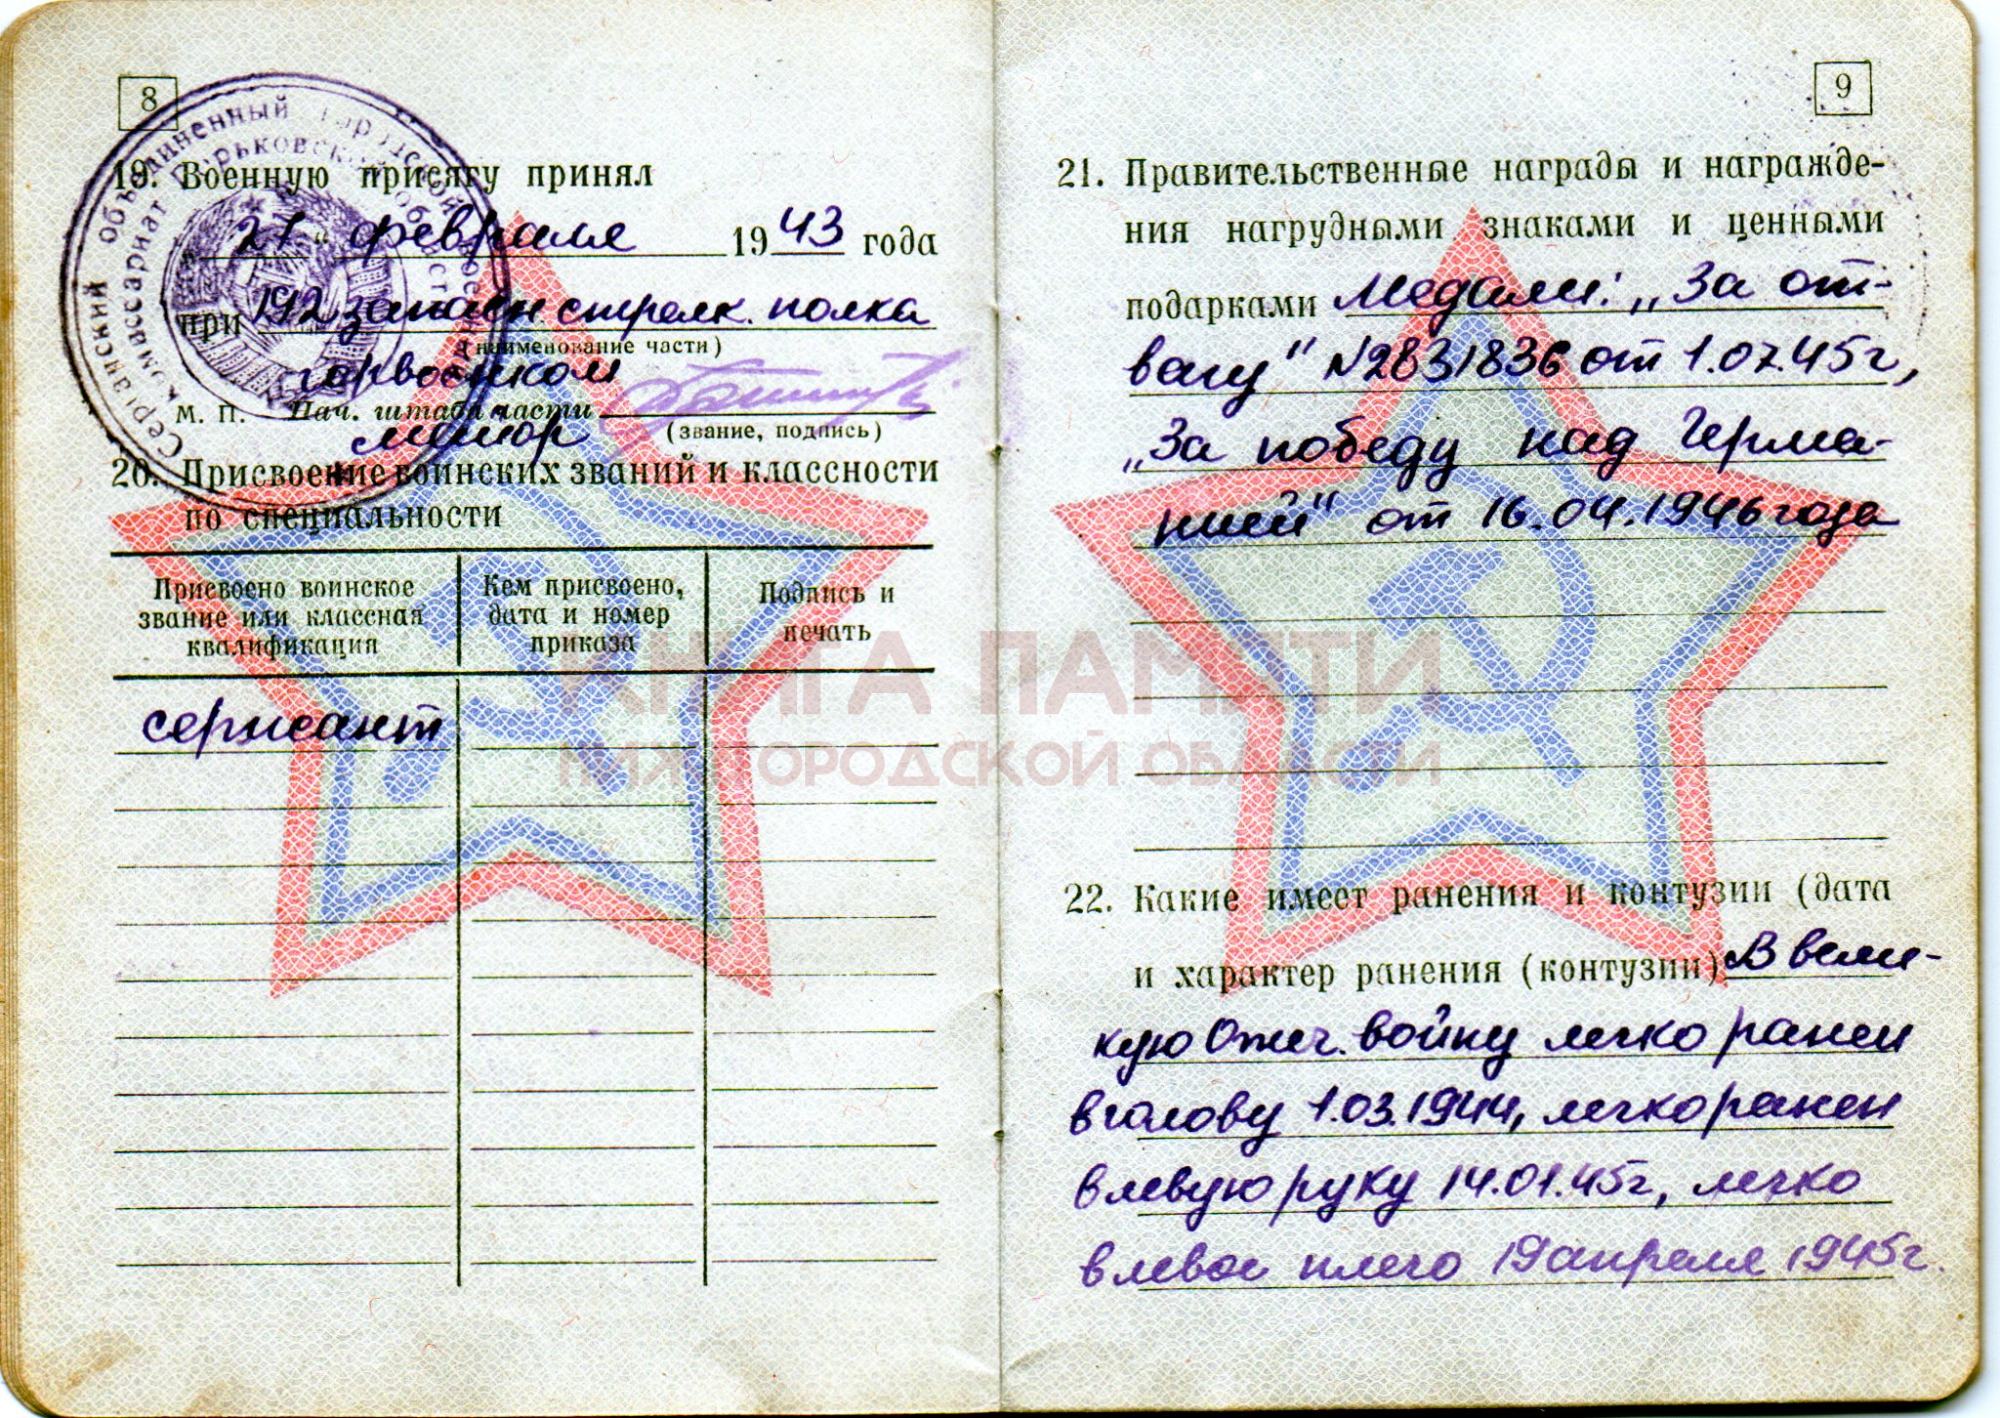 8
Сергачский объединенный городской военный
комиссариат Горьковской области
19. Военную присягу принял
27 " февраля 1943 года
при 192 запасн. стрелк. полка
(наименование части)
горвоенком
М. П. Нач. штаба части
майор (звание, подпись)
20. Присвоение воинских званий и классности
по специальности
Присвоено воинское звание или классная квалификация
Кем присвоено, дата и номер приказа
Подпись и печать
сержант
9
21. Правительственные награды и награжде-
ния нагрудными знаками и ценными
подарками Медали: „За от-
вагу" №2831836 от 1.07.45г,
„За победу над Герма-
нией" от 16.04.1946 года
22. Какие имеет ранения и контузии (дата
и характер ранения (контузии) В вели-
кую Отеч. войну легко ранен
в голову 1.03.1944, легко ранен
в левую руку 14.01.45г, легко
в левое плечо 19 апреля 1945г.
КНИГА ПАМЯТИ
НИЖЕГОРОДСКОЙ ОБЛАСТИ